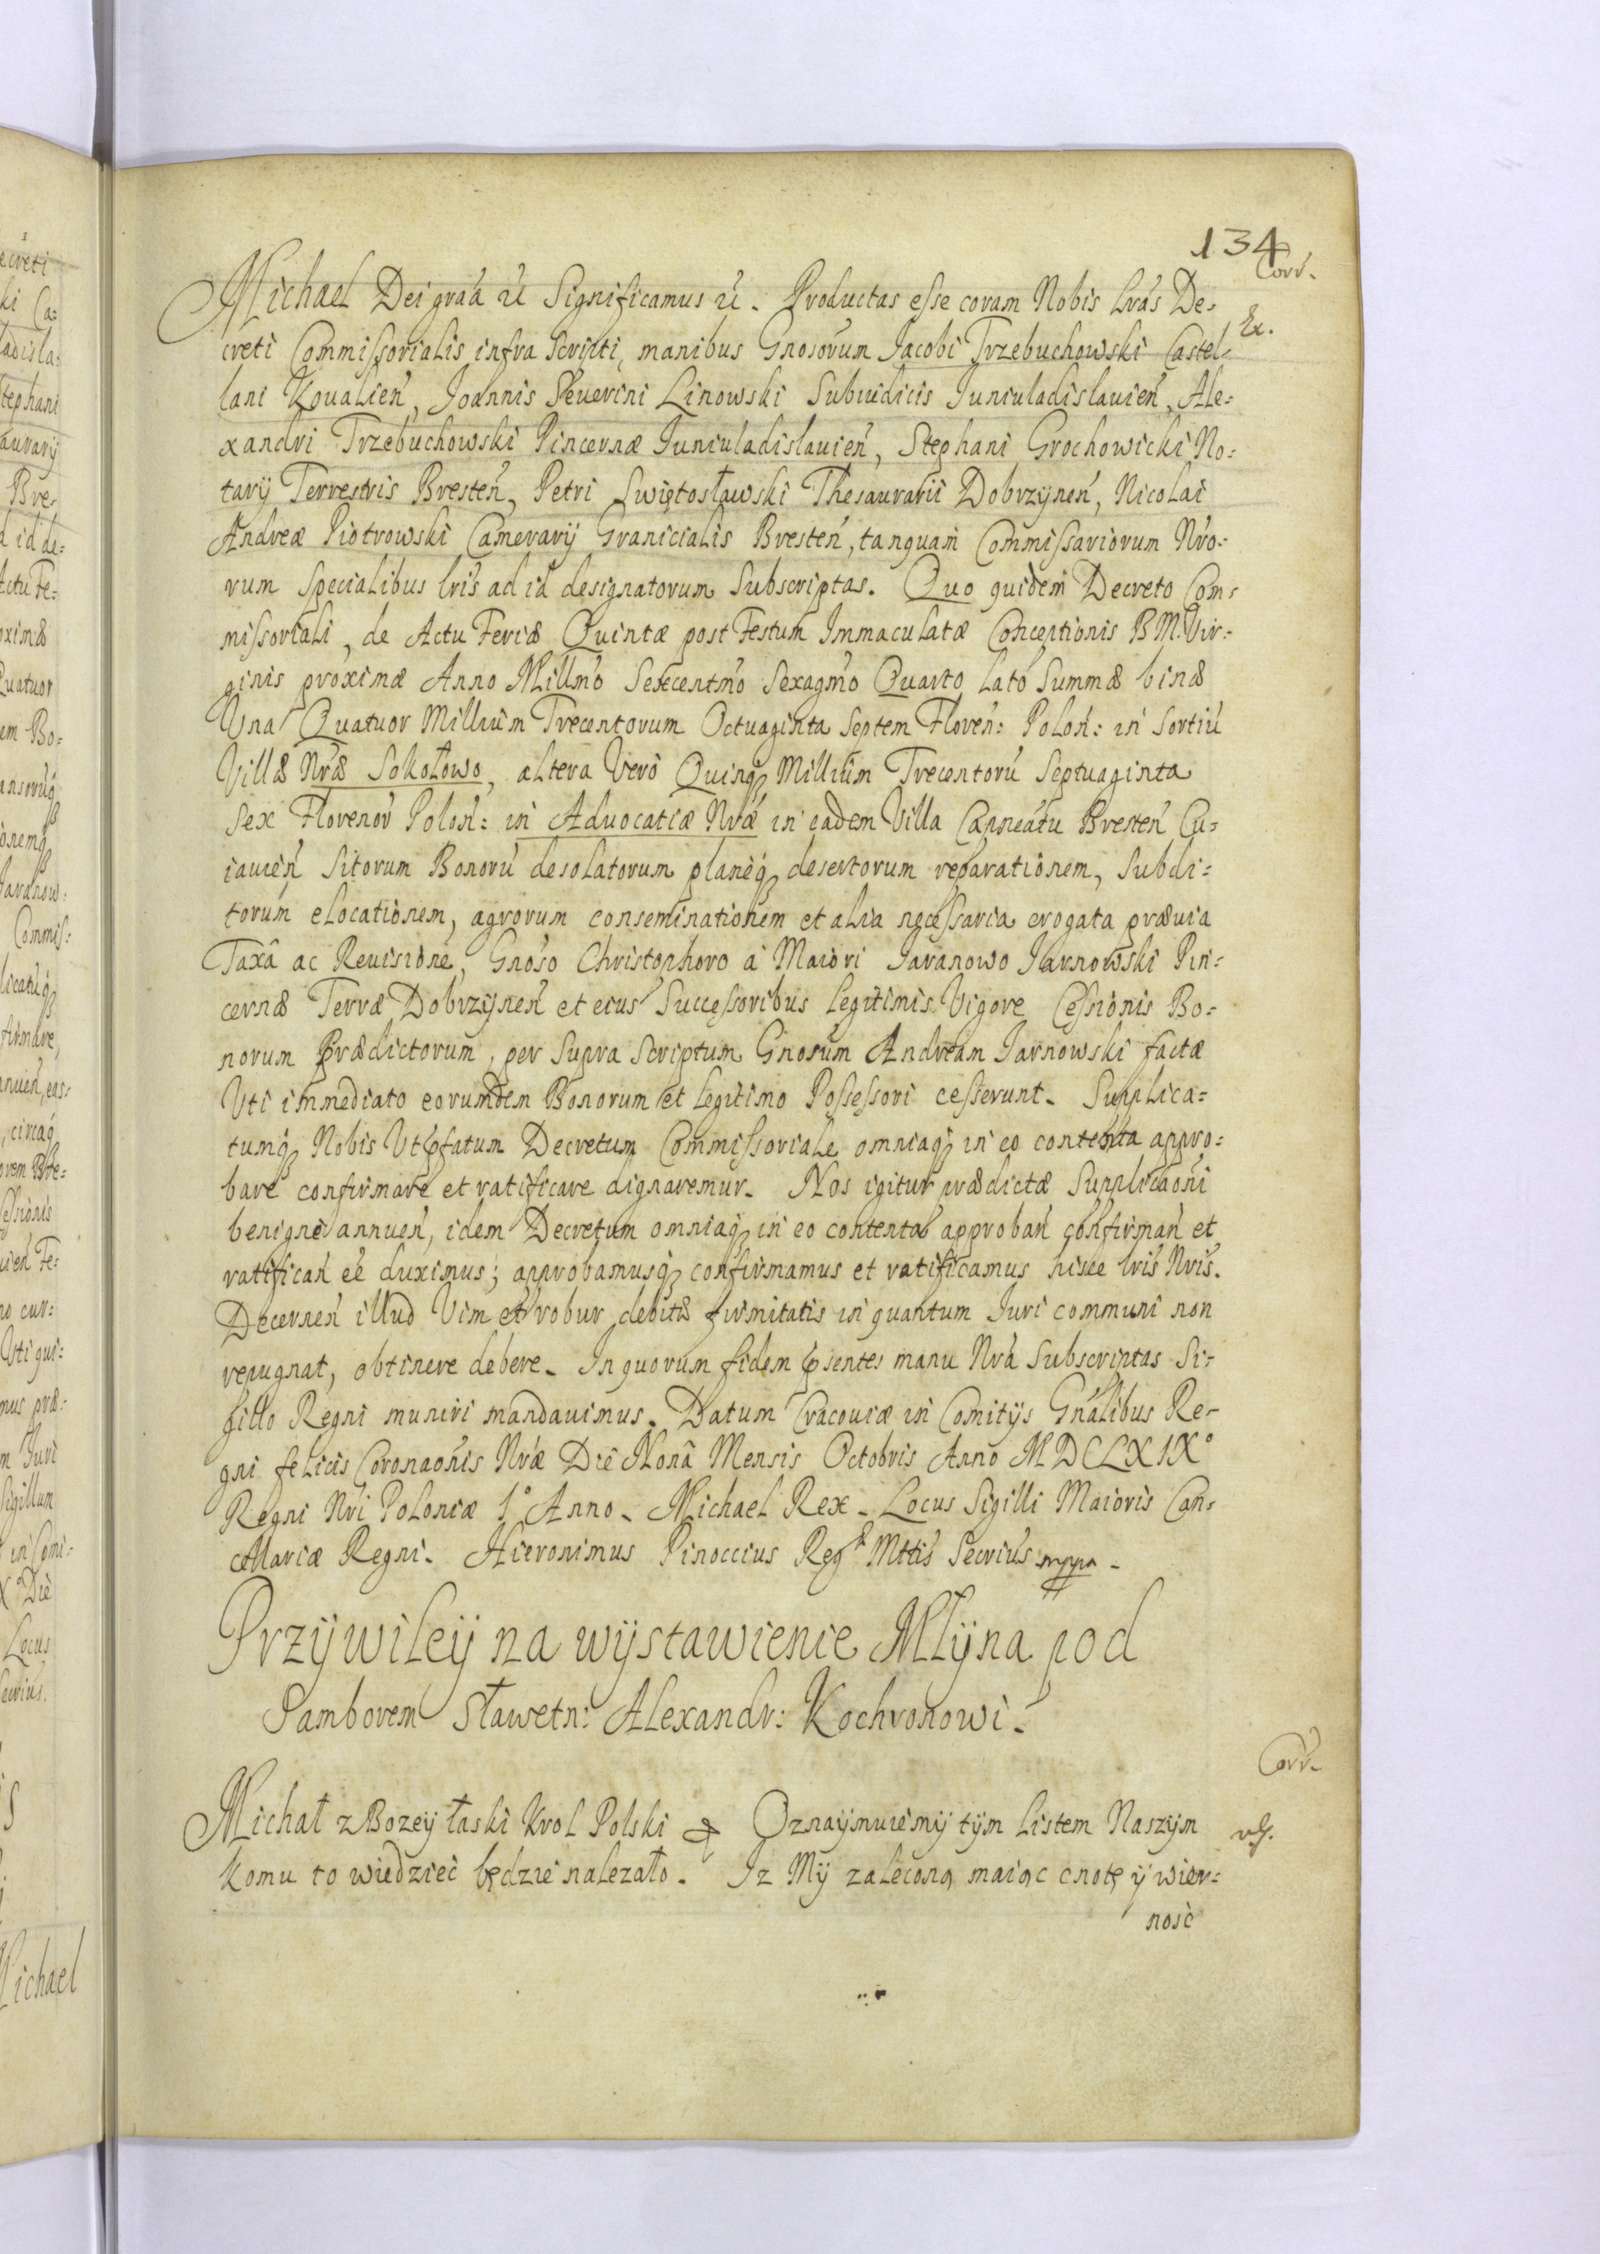 134
Corr.
Michael Dei graa &c Significamus &c. Productas esse coram Nobis Lras De-
Ex.
creti Commissorialis infra Scripti, manibus Gnosorum Jacobi Trzebuchowski Castel-
lani Koualien, Joannis Seuerini Linowski Subiudicis Juniuladislauien, Ale-
xandri Trzebuchowski Pincernæ Juniuladislauien, Stephani Grochowicki No-
tarÿ Terrestris Bresten, Petri Swiętosławski Thesaurarii Dobrzynen, Nicolai
Andreæ Piotrowski Camerarÿ Granicialis Bresten, tanquam Commissariorum Nro-
rum Specialibus lris ad id designatorum Subscriptas. Quo quidem Decreto Com-
missoriali, de Actu Feriæ Quintæ post Festum Immaculatæ Conceptionis B.M. Vir-
ginis proximæ Anno Millmo Sexcentmo Sexagmo Quarto lato Summæ binæ
Una Quatuor Millium Trecentorum Octuaginta Septem Floren: Polon: in Sortiu
Villæ Nræ Sokołowo, altera Vero Quinq Millium Trecentoru Septuaginta
Sex Florenor Polon: in Aduocatiæ Nræ in eadem Villa Capneatu Bresten Cu-
iauien Sitorum Bonoru desolatorum planeq desertorum reparationem, Subdi-
torum elocationem, agrorum conseminationem et alia necessaria erogata præuia
Taxâ ac Reuisione, Gnoso Christophoro à Maiori Jaranowo Jarnowski Pin-
cernæ Terræ Dobrzynen et eius Successoribus legitimis Vigore Cessionis Bo-
norum Prædictorum, per Supra Scriptum Gnosum Andream Jarnowski factæ
Uti immediato eorumdem Bonorum et legitimo Possessori cesserunt. Supplica-
tumq Nobis Ut pfatum Decretum Commissoriale omniaq in eo contenta appro-
bare confirmare et ratificare dignaremur. Nos igitur prædictæ Supplicaoni
benigne annuen, idem Decretum omniaq in eo contenta approban confirman et
ratifican eé duximus; approbamusq confirmamus et ratificamus hisce lris Nris.
Decernen illud Vim et robur debitæ firmitatis in quantum Juri communi non
repugnat, obtinere debere. In quorum fidem psentes manu Nra Subscriptas Si-
gillo Regni muniri mandauimus. Datum Cracouiæ in Comitÿs Gnalibus Re-
gni felicis Coronaonis Nræ Die Nonâ Mensis Octobris Anno MDCLXIX°
Regni Nri Poloniæ 1° Anno. Michael Rex. Locus Sigilli Maioris Can-
cellariæ Regni. Hieronimus Pinoccius Regæ Mttis Secrius mppa.
Przÿwileÿ na wÿstawienie Młÿna pod
Samborem Sławetn: Alexandr: Kochronowi.
Corr.
Michał z Bozeÿ łaski Krol Polski &c Oznaÿmuiemÿ tÿm Listem Naszÿm
komu to wiedziec będzie nalezało. Iz Mÿ zaleconą maiąc cnotę ÿ wier-
nosc